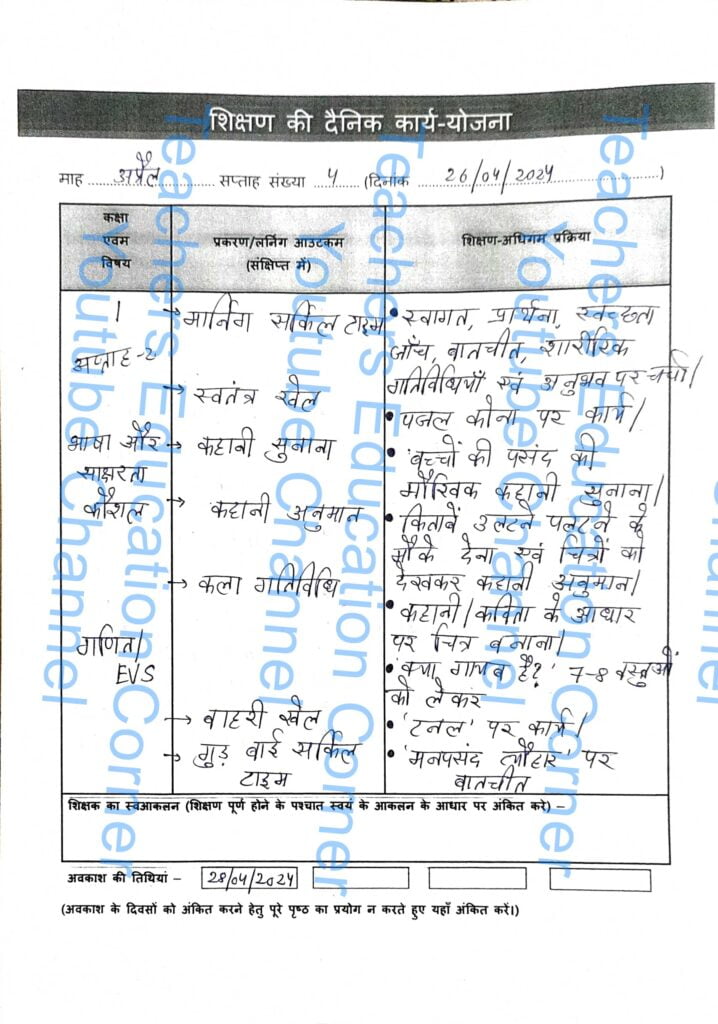 शिक्षण की दैनिक कार्य-योजना
माह ...अप्रैल... सप्ताह संख्या ..4.. (दिनांक ...26/04/2024...)
कक्षा एवम विषय
प्रकरण/लर्निग आउटकम (संक्षिप्त में)
शिक्षण-अधिगम प्रक्रिया
1
सप्ताह-2
भाषा और
साक्षरता
कौशल
गणित/
EVS
→ मार्निग सर्किल टाइम
→ स्वतंत्र खेल
→ कहानी सुनाना
→ कहानी अनुमान
→ कला गतिविधि
→ बाहरी खेल
→ गुड़ बाई सर्किल
टाइम
• स्वागत, प्रार्थना, स्वच्छता
जाँच, बातचीत, शारीरिक
गतिविधियाँ एवं अनुभव पर चर्चा।
• पजल कोना पर कार्य।
• बच्चों की पसंद की
मौखिक कहानी सुनाना।
• किताबें उलटने पलटने के
मौके देना एवं चित्रों को
देखकर कहानी अनुमान।
• कहानी/कविता के आधार
पर चित्र बनाना।
• 'क्या गायब है?' 7-8 वस्तुओं
को लेकर
• 'टनल' पर कार्य।
• 'मनपसंद त्यौहार' पर
बातचीत
शिक्षक का स्वआकलन (शिक्षण पूर्ण होने के पश्चात स्वयं के आकलन के आधार पर अंकित करे) –
अवकाश की तिथियां – 28/04/2024
(अवकाश के दिवसों को अंकित करने हेतु पूरे पृष्ठ का प्रयोग न करते हुए यहाँ अंकित करें।)
Teachers Education Corner
Youtube Channel
Teachers Education Corner
Youtube Channel
Teachers Education Corner
Youtube Channel